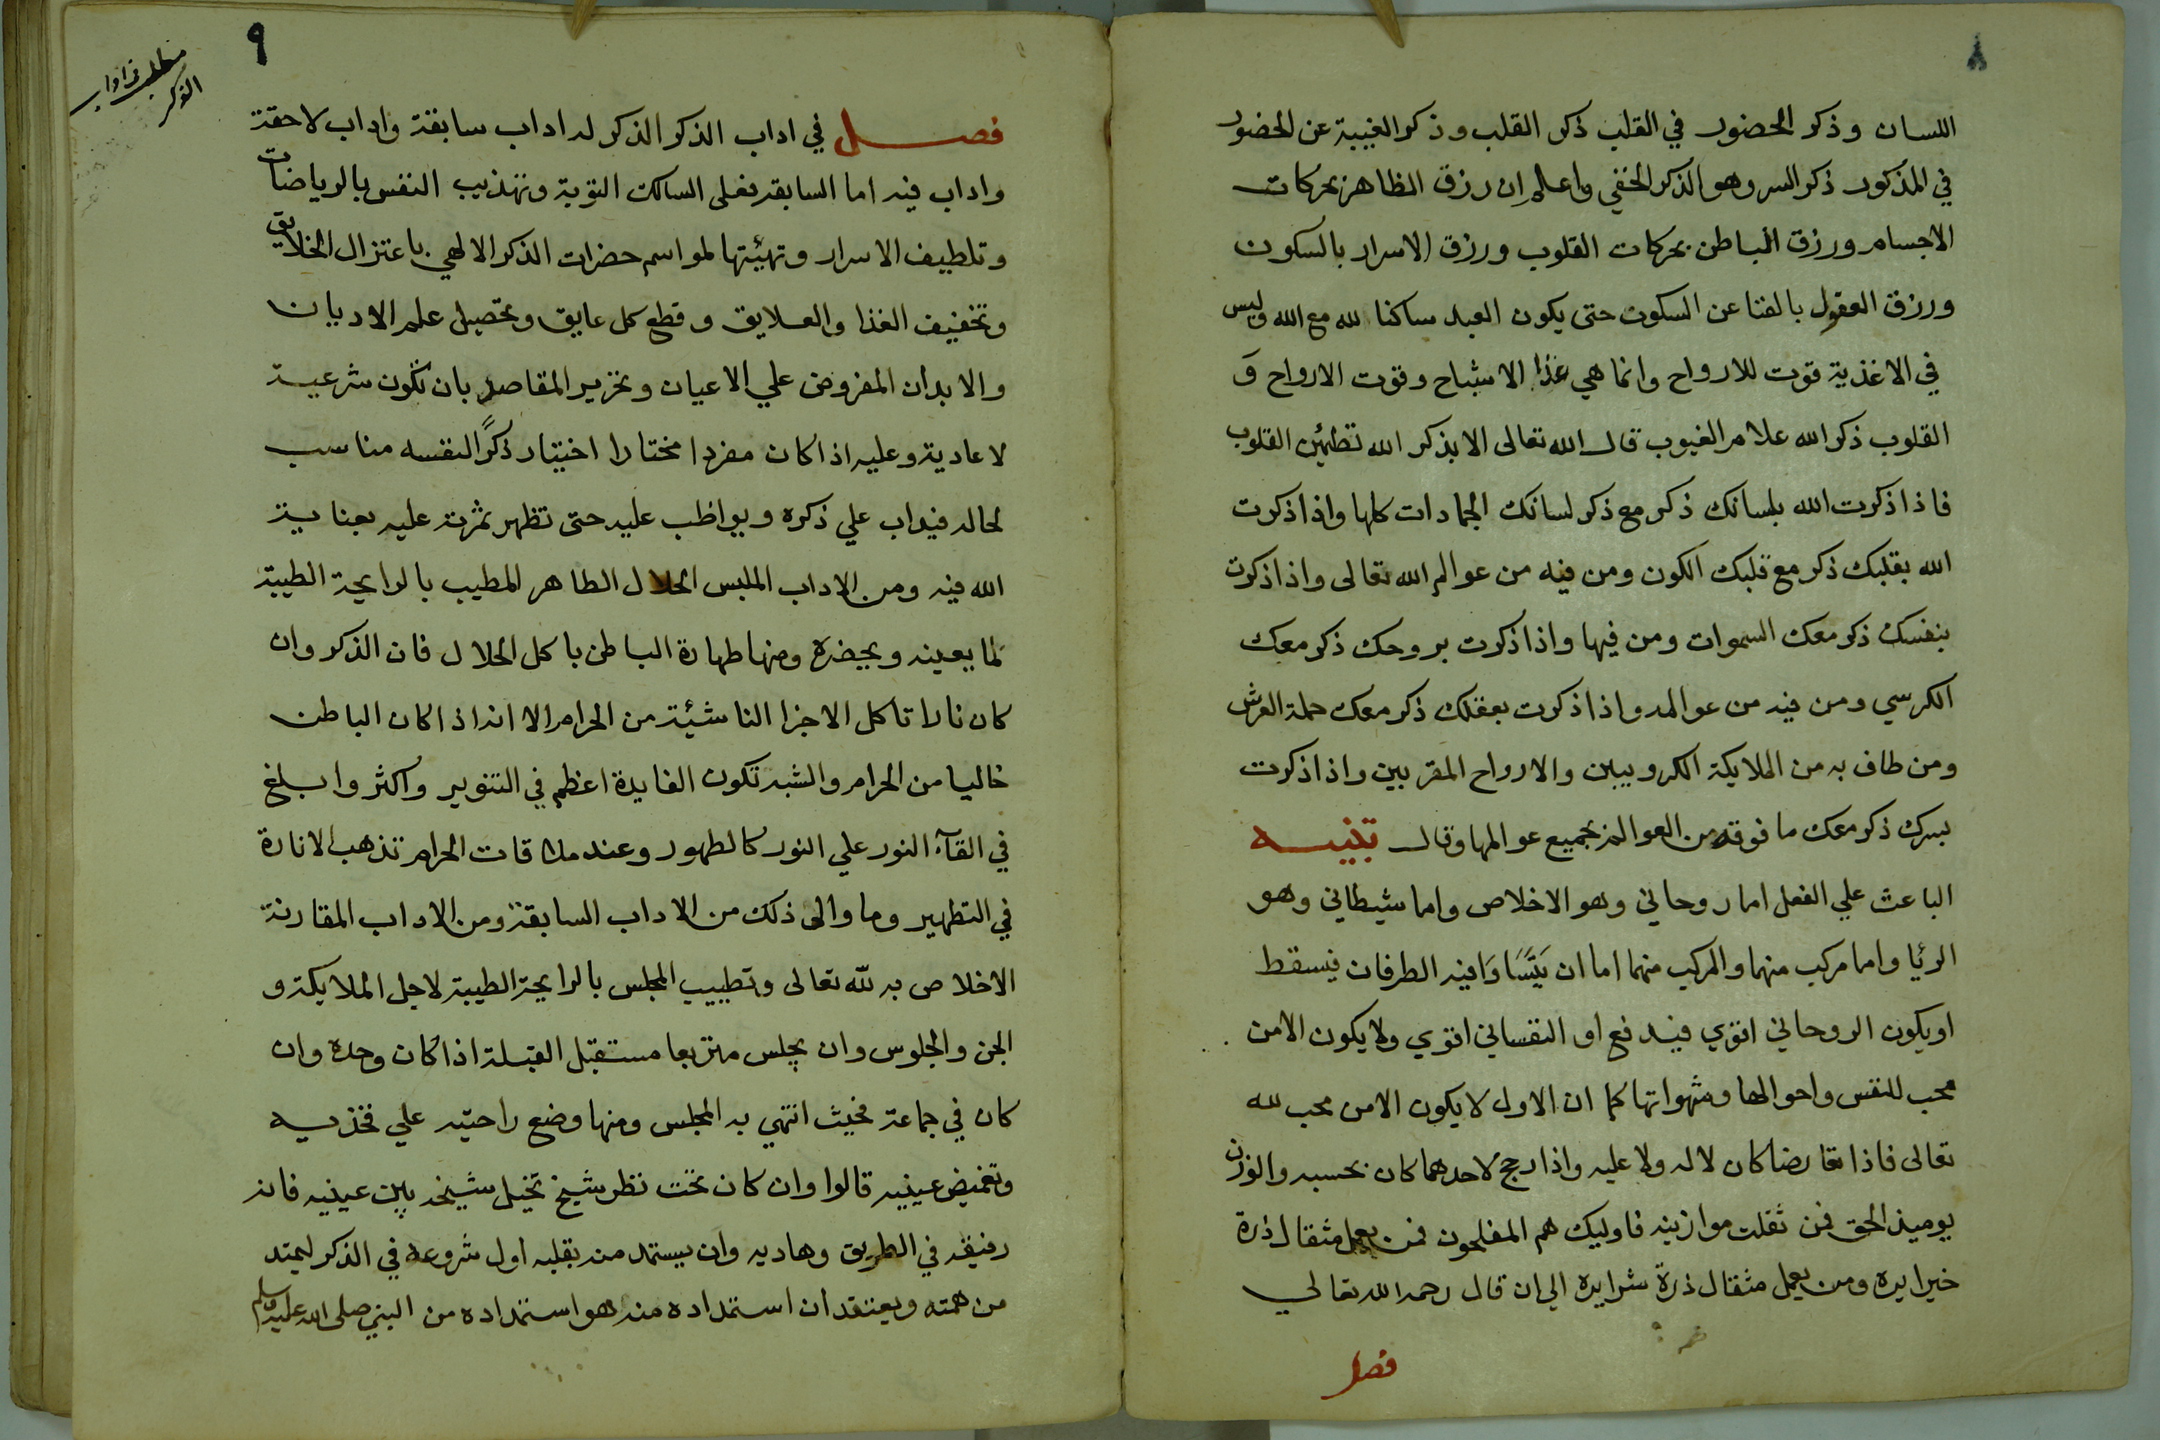 ٨
اللسان وذكر الحضور في القلب ذكر القلب وذكر الغيبة عن الحضور
في المذكور ذكر السر وهو الذكر الخفي واعلم ان رزق الظاهر بحركات
الاجسام ورزق الباطن بحركات القلوب ورزق الاسرار بالسكون
ورزق العقول بالفنا عن السكون حتى يكون العبد ساكنا لله مع الله وليس
في الاغذية قوت للارواح وانما هي غذا الاشباح وقوت الارواح و
القلوب ذكر الله علام الغيوب قال الله تعالى الا بذكر الله تطمئن القلوب
فاذا ذكرت الله بلسانك ذكر مع ذكر لسانك الجمادات كلها واذا ذكرت
الله بقلبك ذكر مع قلبك الكون ومن فيه من عوالم الله تعالى واذا ذكرت
بنفسك ذكر معك السموات ومن فيها واذا ذكرت بروحك ذكر معك
الكرسي ومن فيه من عوالمه واذا ذكرت بعقلك ذكر معك حملة العرش
ومن طاف به من الملايكة الكروبيين والارواح المقربين واذا ذكرت
بسرك ذكر معك ما فوقه من العوالم بجميع عوالمها وقال تنبيه
الباعث علي الفعل اما روحاني وهو الاخلاص واما شيطاني وهو
الريا واما مركب منهما والمركب منهما اما ان يتساوا فيه الطرفان فيسقط
او يكون الروحاني اقوي فيدفع او النفساني اقوي ولا يكون الا من
محب للنفس واحوالها وشهواتها كما ان الاول لا يكون الا من محب لله
تعالى فاذا تعارضا كان لا له ولا عليه واذا رجح لاحدهما كان بحسبه والوزن
يوميذ الحق فمن ثقلت موازينه فاوليك هم المفلحون فمن يعمل مثقال ذرة
خيرا يره ومن يعمل مثقال ذرة شرا يره الي ان قال رحمه الله تعالي
فصل
٩
مطلب في اداب
الذكر
فصل في اداب الذكر الذكر له اداب سابقة واداب لاحقة
واداب فيه اما السابقه فعلى السالك التوبة وتهذيب النفس بالرياضات
وتلطيف الاسرار وتهيئتها لمواسم حضرات الذكر الالهي باعتزال الخلايق
وتخفيف الغذا والعلايق وقطع كل عايق وتحصيل علم الاديان
والابدان المفروض علي الاعيان وتحرير المقاصد بان تكون شرعية
لا عادية وعليه اذا كان مفردا مختارا اختيار ذكرًا لنفسه مناسب
لحاله فيداب علي ذكره ويواظب عليه حتى تظهر ثمرته عليه بعناية
الله فيه ومن الاداب الملبس الحلال الطاهر المطيب بالرايحة الطيبة
لما يعينه ويحضره ومنها طهارة الباطن باكل الحلال فان الذكر وان
كان نارا تاكل الاجزا الناشئة من الحرام الا انه اذا كان الباطن
خاليا من الحرام والشبه تكون الفايدة اعظم في التنوير واكثر وابلغ
في القآء النور علي النور كالطهور وعند ملاقات الحرام تذهب الانارة
في التطهير وما والى ذلك من الاداب السابقة ومن الاداب المقارنة
الاخلاص به لله تعالى وتطييب المجلس بالرايحة الطيبة لاجل الملايكة و
الجن والجلوس وان يجلس متربعا مستقبل القبلة اذا كان وحده وان
كان في جماعة فحيث انتهي به المجلس ومنها وضع راحتيه علي فخذيه
وتغميض عينيه قالوا وان كان تحت نظر شيخ تخيل شيخه بين عينيه فانه
رفيقه في الطريق وهاديه وان يستمد منه بقلبه اول شروعه في الذكر ليمتد
من همته ويعتقد ان استمداده منه هو استمداده من النبي صلى الله عليه وسلم